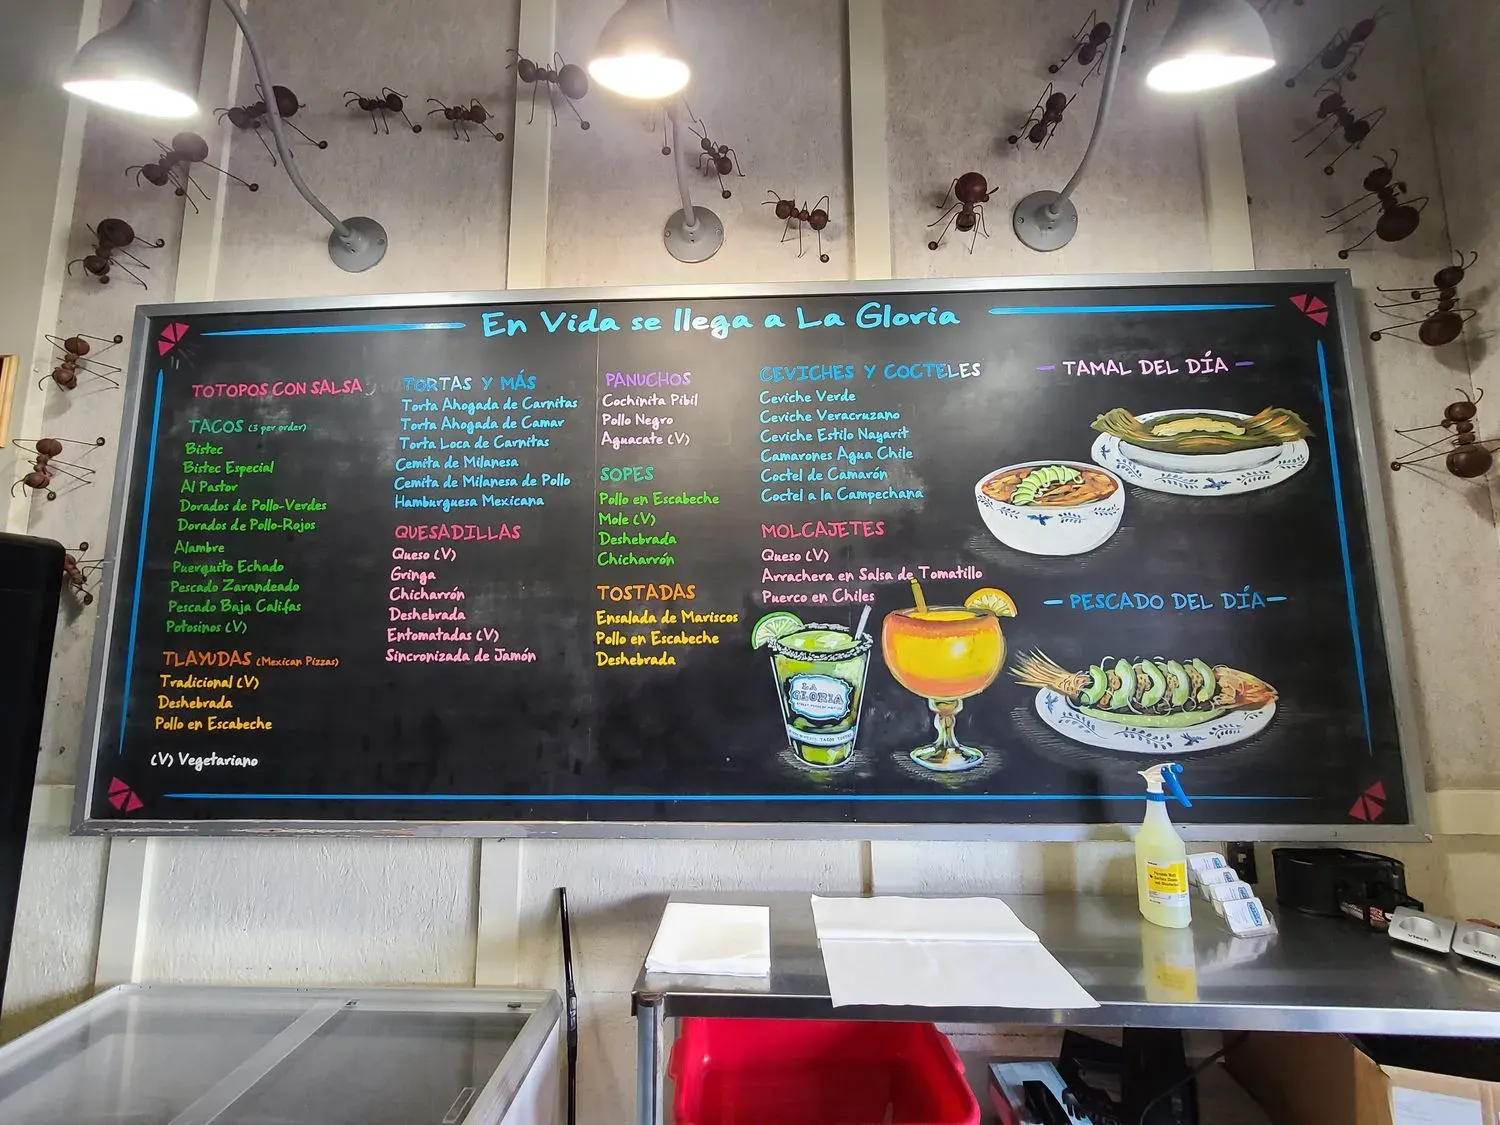 En Vida se llega a La Gloria
TOTOPOS CON SALSA
TACOS (3 per order)
Bistec
Bistec Especial
Al Pastor
Dorados de Pollo-Verdes
Dorados de Pollo-Rojos
Alambre
Puerquito Echado
Pescado Zarandeado
Pescado Baja Califas
Potosinos (V)
TLAYUDAS (Mexican Pizzas)
Tradicional (V)
Deshebrada
Pollo en Escabeche
(V) Vegetariano
TORTAS Y MÁS
Torta Ahogada de Carnitas
Torta Ahogada de Camar
Torta Loca de Carnitas
Cemita de Milanesa
Cemita de Milanesa de Pollo
Hamburguesa Mexicana
QUESADILLAS
Queso (V)
Gringa
Chicharrón
Deshebrada
Entomatadas (V)
Sincronizada de Jamón
PANUCHOS
Cochinita Pibil
Pollo Negro
Aguacate (V)
SOPES
Pollo en Escabeche
Mole (V)
Deshebrada
Chicharrón
TOSTADAS
Ensalada de Mariscos
Pollo en Escabeche
Deshebrada
CEVICHES Y COCTELES
Ceviche Verde
Ceviche Veracruzano
Ceviche Estilo Nayarit
Camarones Agua Chile
Coctel de Camarón
Coctel a la Campechana
MOLCAJETES
Queso (V)
Arrachera en Salsa de Tomatillo
Puerco en Chiles
LA
GLORIA
- TAMAL DEL DÍA -
- PESCADO DEL DÍA -
vtech
vtech